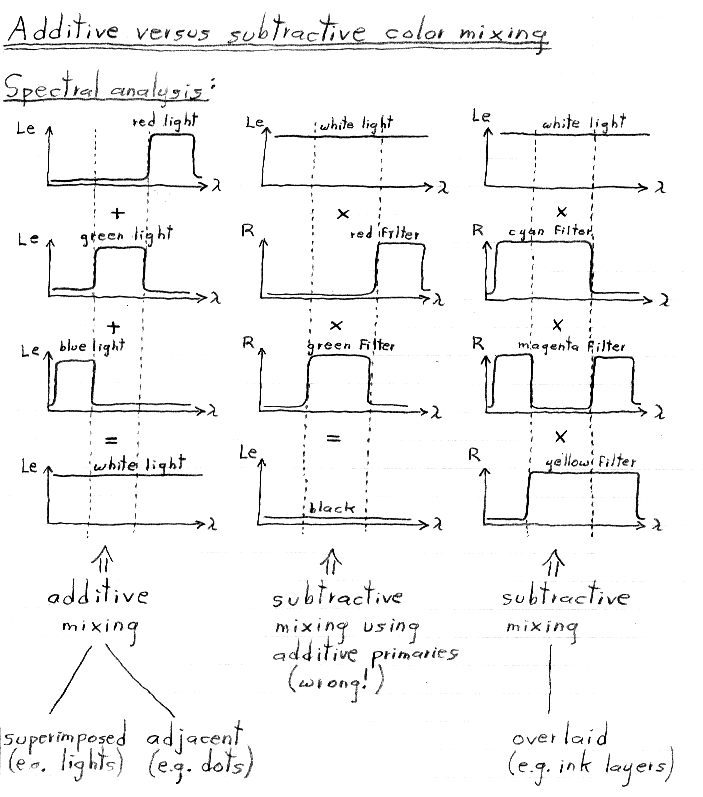 Additive versus subtractive color mixing
Spectral analysis:
Le red light λ
+
Le green light λ
+
Le blue light λ
=
Le white light λ
⇑
additive
mixing
superimposed
(e.g. lights)
adjacent
(e.g. dots)
Le white light λ
×
R red filter λ
×
R green Filter λ
=
Le black λ
⇑
subtractive
mixing using
additive primaries
(wrong!)
Le white light λ
×
R cyan Filter λ
×
R magenta Filter λ
×
R yellow Filter λ
⇑
subtractive
mixing
overlaid
(e.g. ink layers)